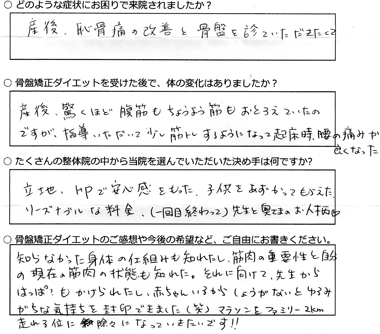 ○ どのような症状にお困りで来院されましたか？
産後、恥骨痛の改善と骨盤を診ていただきたくて
○ 骨盤矯正ダイエットを受けた後で、体の変化はありましたか？
産後、驚くほど腹筋もちょうよう筋もおとろえていたの
ですが、指導いただいて少し筋トレするようになって起床時、腰の痛みが
良くなった
○ たくさんの整体院の中から当院を選んでいただいた決め手は何ですか？
立地、HPで安心感をもった、子供をあずかってもらえた、
リーズナブルな料金、(一回目終わって)先生と奥さまのお人柄
○ 骨盤矯正ダイエットのご感想や今後の希望など、ご自由にお書きください。
知らなかった身体の仕組みも知れたし、筋肉の重要性と自分
の現在の筋肉の状態も知れた。それに向けて、先生から
はっぱ？もかけられたし、赤ちゃんいるからしょうがないとゆるみ
がちな気持ちを封印できました(笑)マラソンをファミリー2km
走れる位になっていきたいです!!